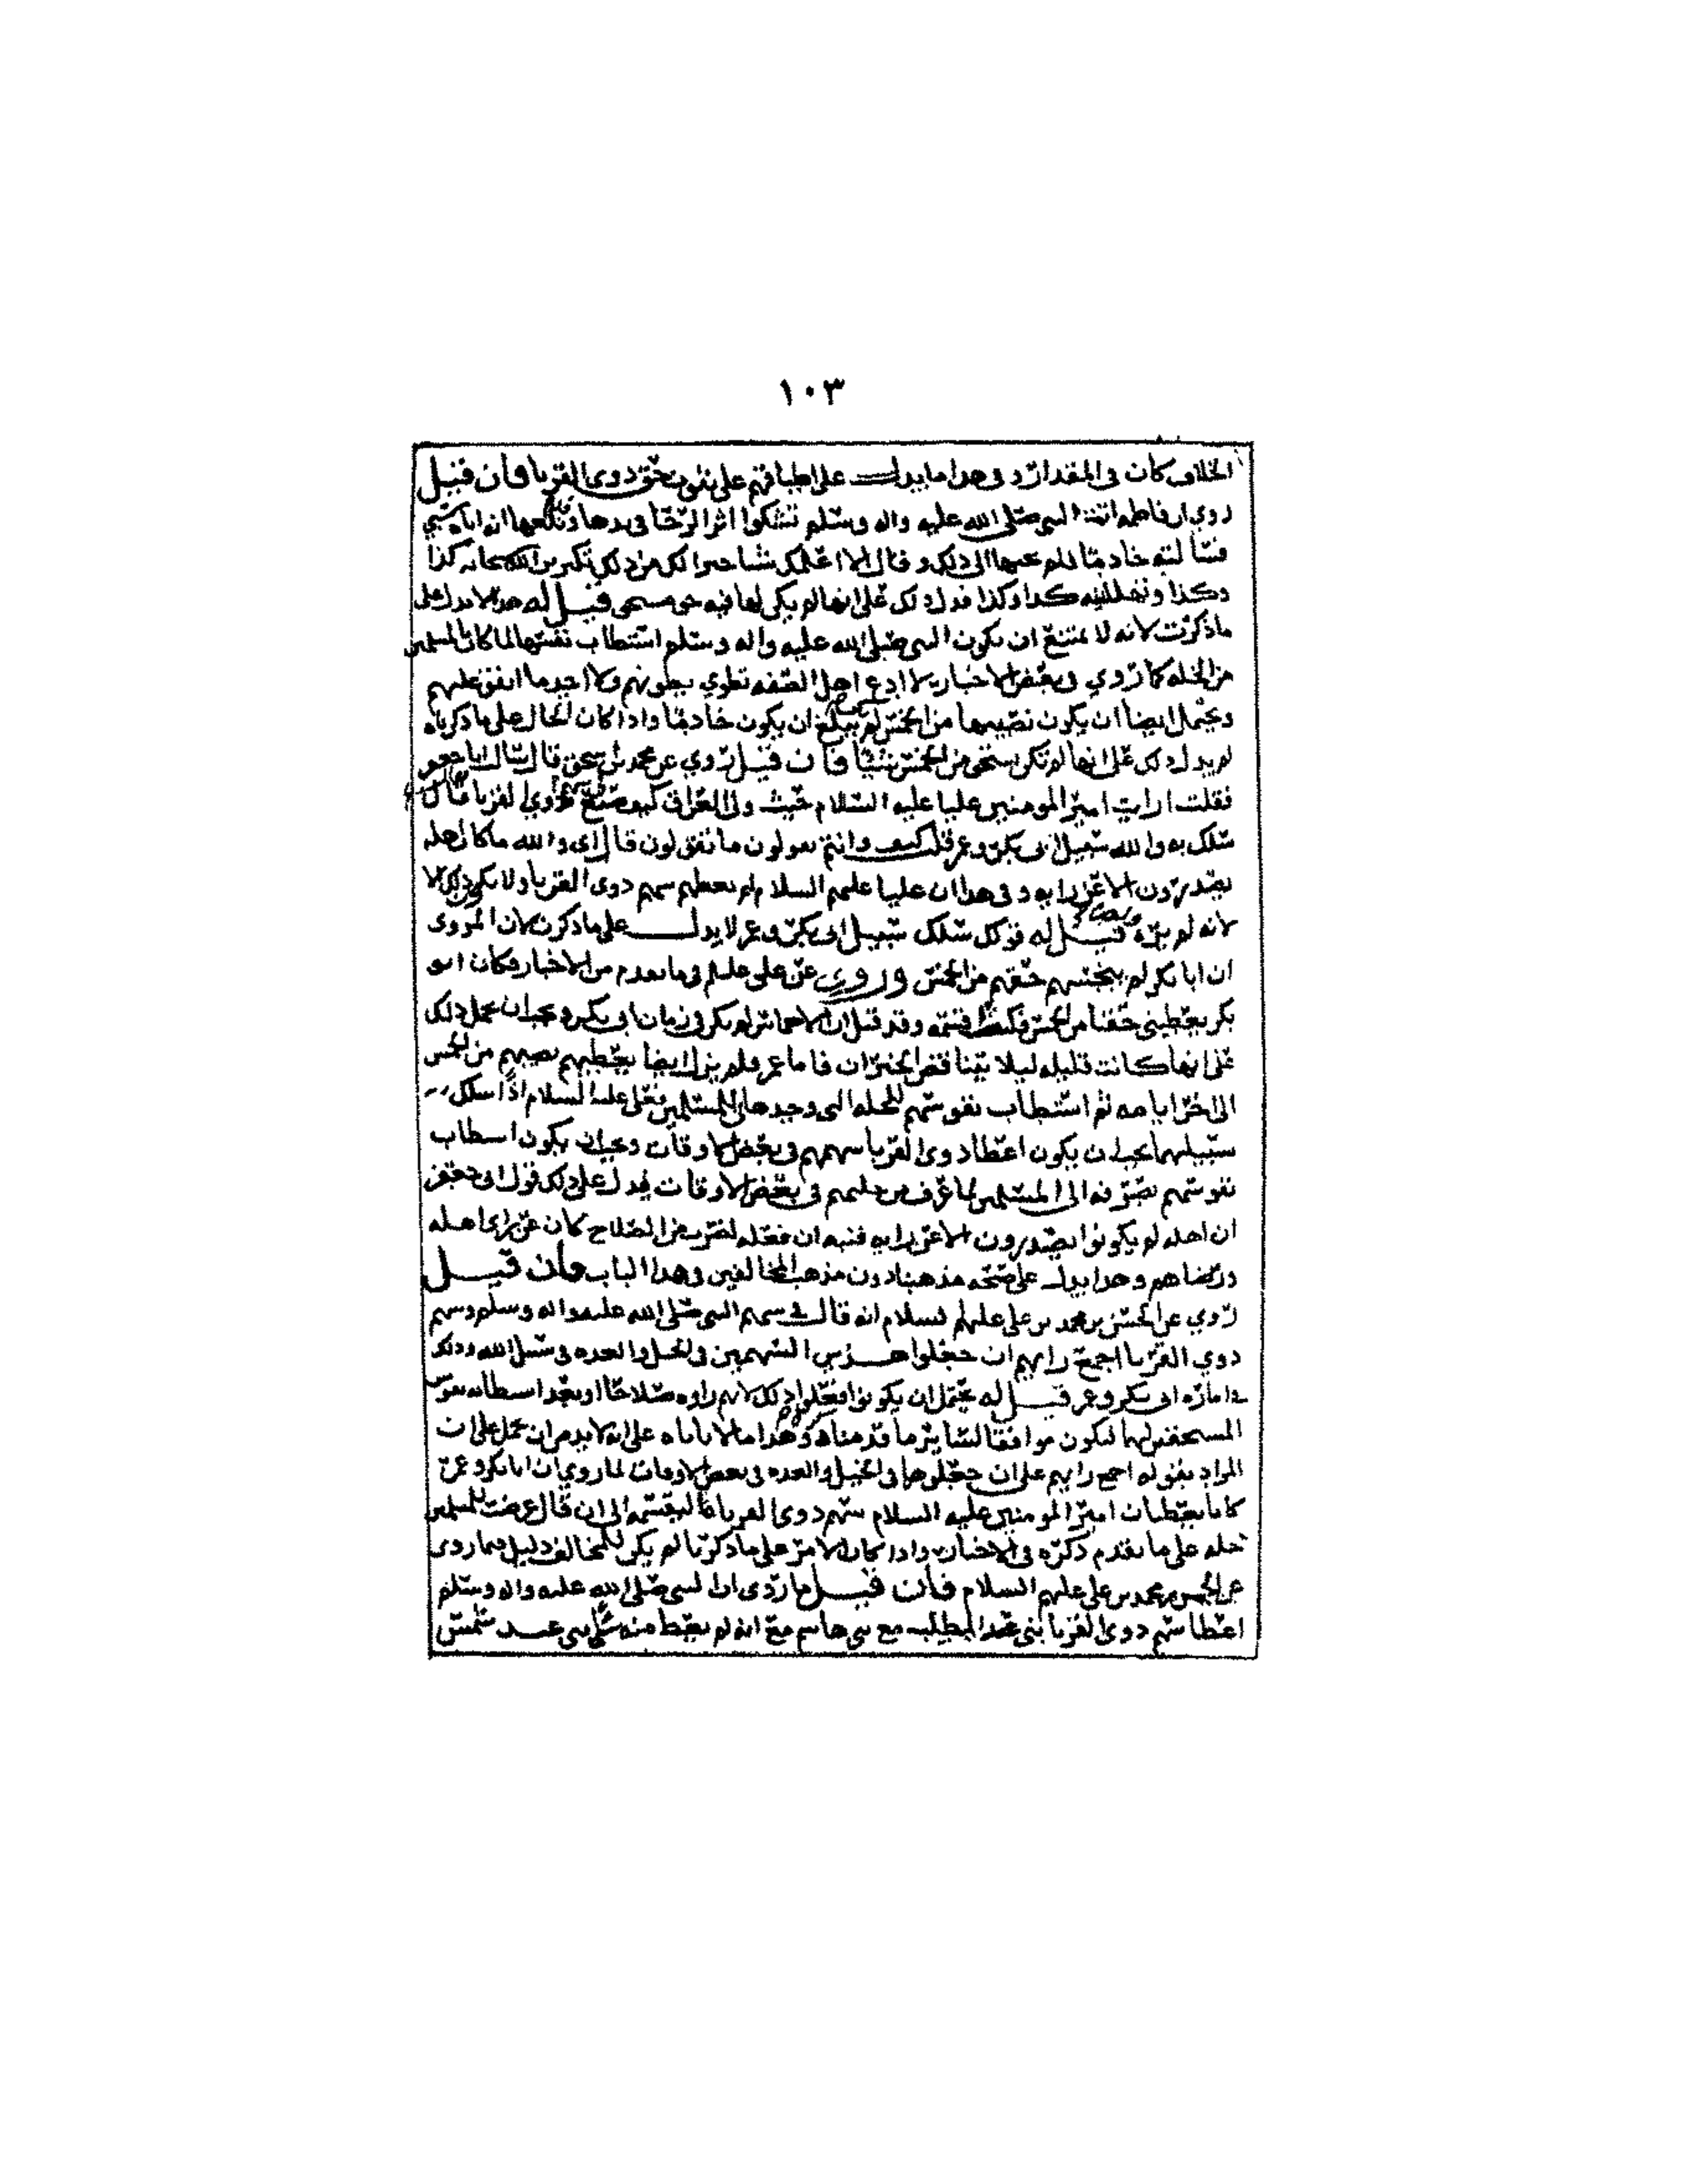 ١٠٣
الخلاف كان في المقدار وفي هذا ما يدل على اطباقهم على ثبوت حق ذوي القربا فان قيل
روي ان فاطمه اتت النبي صلى الله عليه واله وسلم تشكوا اثر الرحا في يدها وبلغها انه اتاه سبي
فسالته خادما فلم يجبها الى ذلك وقال الا اعلمك شيا خيرا لك من ذلك تكبرين الله سبحانه كذا
وكذا وتهللينه كذا وكذا فدل ذلك على انها لم يكن لها فيه حق مستحق قيل له هذا لا يدل على
ما ذكرت لانه لا يمتنع ان يكون النبي صلى الله عليه واله وسلم استطاب نفسها لما كان بالمسلمين
من الخله كما روي في بعض الاخبار لا ادع اهل الصفه تطوي بطونهم ولا اجد ما انفق عليهم
ويحتمل ايضا ان يكون نصيبها من الخمس لم يبلغ ان يكون خادما واذا كان الحال على ما ذكرناه
لم يدل ذلك على انها لم تكن تستحق من الخمس شيا فان قيل روي عن محمد بن اسحق قال سالت ابا جعفر
فقلت ارايت امير المومنين عليا عليه السلام حيث ولي العراق كيف صنع في سهم ذوي القربا قال
سلك به والله سبيل ابي بكر وعمر قلت كيف وانتم تقولون ما تقولون قال اي والله ما كان اهله
يصدرون الا عن رايه وفي هذا ان عليا عليهم السلام لم يعطهم سهم ذوي القربا ولا يكون ذلك الا
لانه لم يره قيل له قولك سلك سبيل ابي بكر وعمر لا يدل على ما ذكرت لان المروي
ان ابا بكر لم يبخسهم حقهم من الخمس وروي عن علي عليلم في ما تقدم من الاخبار وكان ابو
بكر يعطيني حقنا من الخمس فكنت اقسمه وقد قيل ان الاخماس لم يكن في زمان ابي بكر ويجب ان يحمل ذلك
على انها كانت قليله ليلا يتناقض الخبران فاما عمر فلم يزل ايضا يعطيهم نصيبهم من الخمس
الى اخر ايامه ثم استطاب نفوسهم للخله التي وجدها في المسلمين فعلي عليه السلام اذا سلك
سبيلهما يجب ان يكون اعطا ذوي القربا سهمهم في بعض الاوقات ويجب ان يكون استطاب
نفوسهم بصرفه الى المسلمين لما عرف من خلتهم في بعض الاوقات يدل على ذلك قول ابي جعفر
ان اهله لم يكونوا يصدرون الا عن رايه فنبه ان فعله لضرب من الصلاح كان عن راي اهله
ورضاهم وهذا يدل على صحه مذهبنا دون مذهب المخالفين في هذا الباب فان قيل
روي عن الحسن بن محمد بن علي عليهلم السلام انه قال في سهم النبي صلى الله عليه واله وسلم وسهم
ذوي القربا اجمع رايهم ان جعلوا هذين السهمين في الخيل والعده في سبيل الله وذلك
في اماره ابي بكر وعمر قيل له يحتمل ان يكونوا فعلوا ذلك لانهم راوه صلاحا او بعد استطابه نفوس
المستحقين لهما ليكون موافقا لسائر ما قدمناه وهذا مما لا ياباه على انه لا بد من ان يحمل على ان
المراد بقوله اجمع رايهم على ان جعلوها في الخيل والعده في بعض الاوقات لما روي ان ابا بكر وعمر
كانا يعطيان امير المومنين عليه السلام سهم ذوي القربا فاليقسمه الى ان قال عرضت للمسلمين
خله على ما تقدم ذكره في الاخبار واذا كان الامر على ما ذكرنا لم يكن للمخالف دليل فيما روي
عن الحسن بن محمد بن علي عليهم السلام فان قيل ما روي ان النبي صلى الله عليه واله وسلم
اعطا سهم ذوي القربا بني عبد المطلب مع بني هاشم مع انه لم يعط منه شيا بني عبد شمس